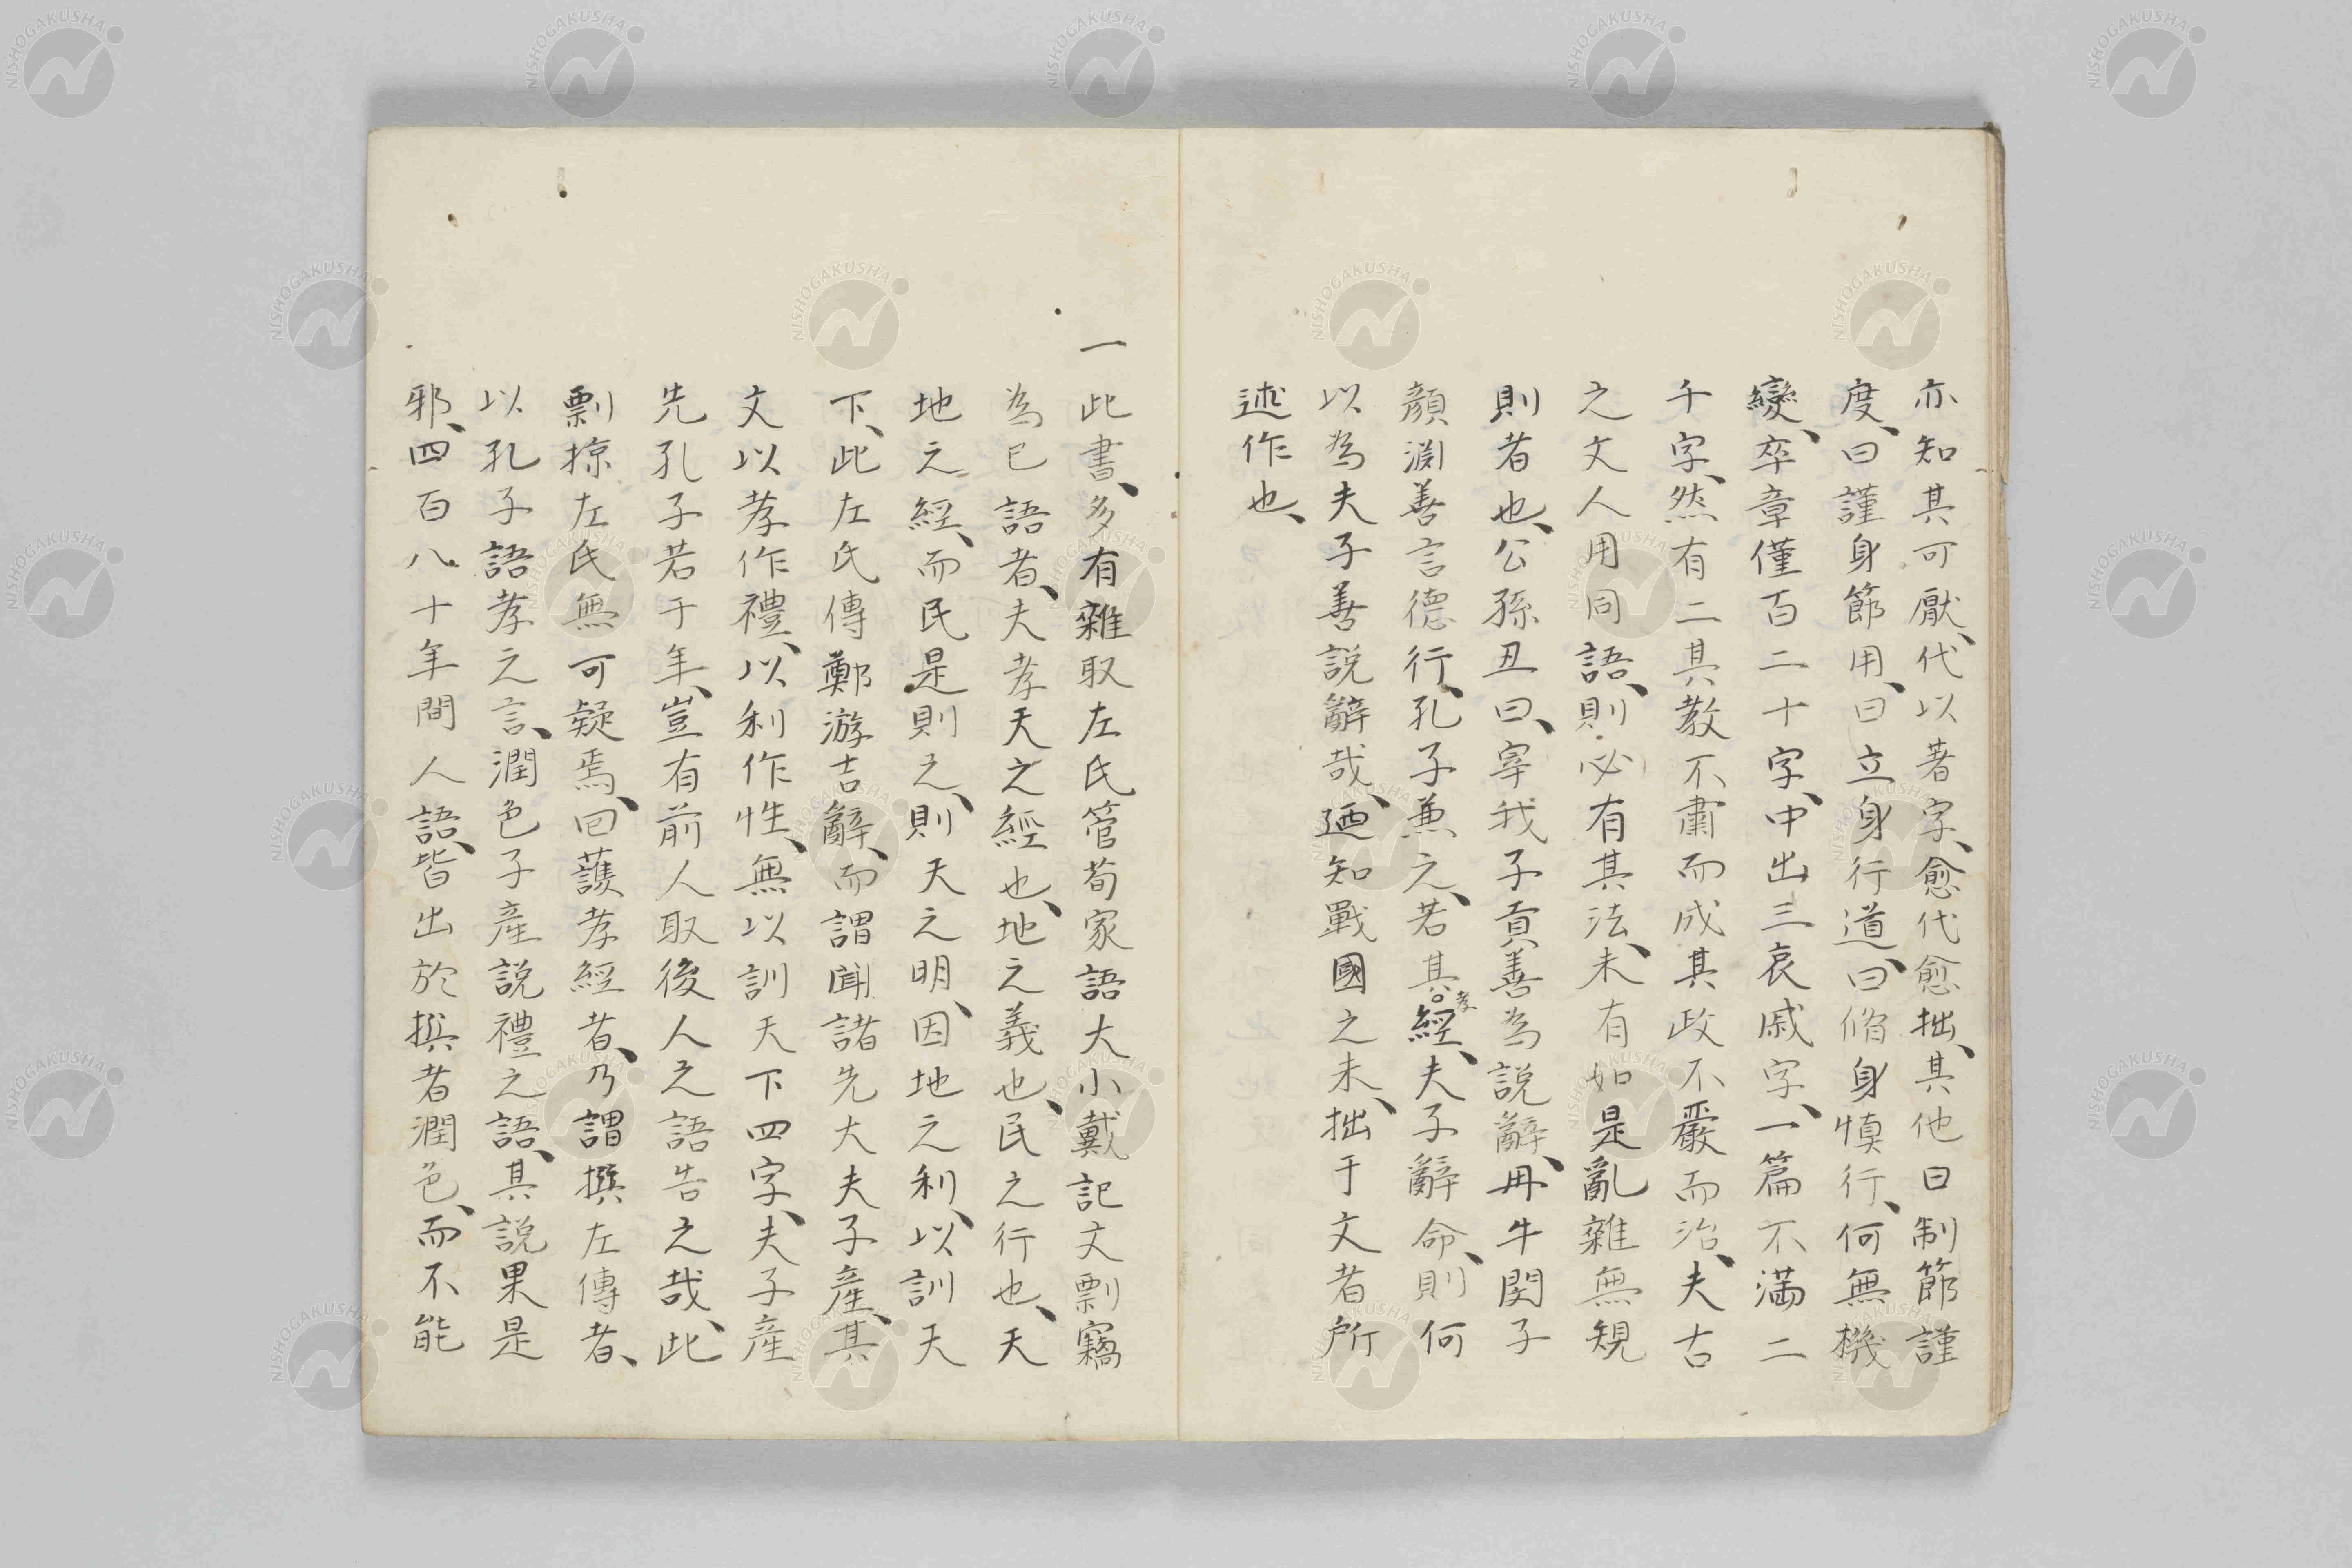 亦知其可厭、代以著字、愈代愈拙、其他曰制節謹
度、曰謹身節用、曰立身行道、曰脩身慎行、何無機
變、卒章僅百二十字、中出三哀戚字、一篇不滿二
千字、然有二其教不肅而成其政不嚴而治、夫古
之文人用同語、則必有其法、未有如是亂雜無規
則者也、公孫丑曰、宰我子貢善為說辭、冉牛閔子
顏淵善言德行、孔子兼之、若其孝經、夫子辭命、則何
以為夫子善說辭哉、廼知戰國之末、拙于文者所
述作也、
一此書、多有雜取左氏管荀家語大小戴記文剽竊
為已語者、夫孝天之經也、地之義也、民之行也、天
地之經、而民是則之、則天之明、因地之利、以訓天
下、此左氏傳鄭游吉辭、而謂聞諸先大夫子產、其
文以孝作禮、以利作性、無以訓天下四字、夫子產
先孔子若干年、豈有前人取後人之語告之哉、此
剽掠左氏無可疑焉、回護孝經者、乃謂撰左傳者、
以孔子語孝之言、潤色子產說禮之語、其說果是
邪、四百八十年間人語、皆出於撰者潤色、而不能
NISHOGAKUSHA